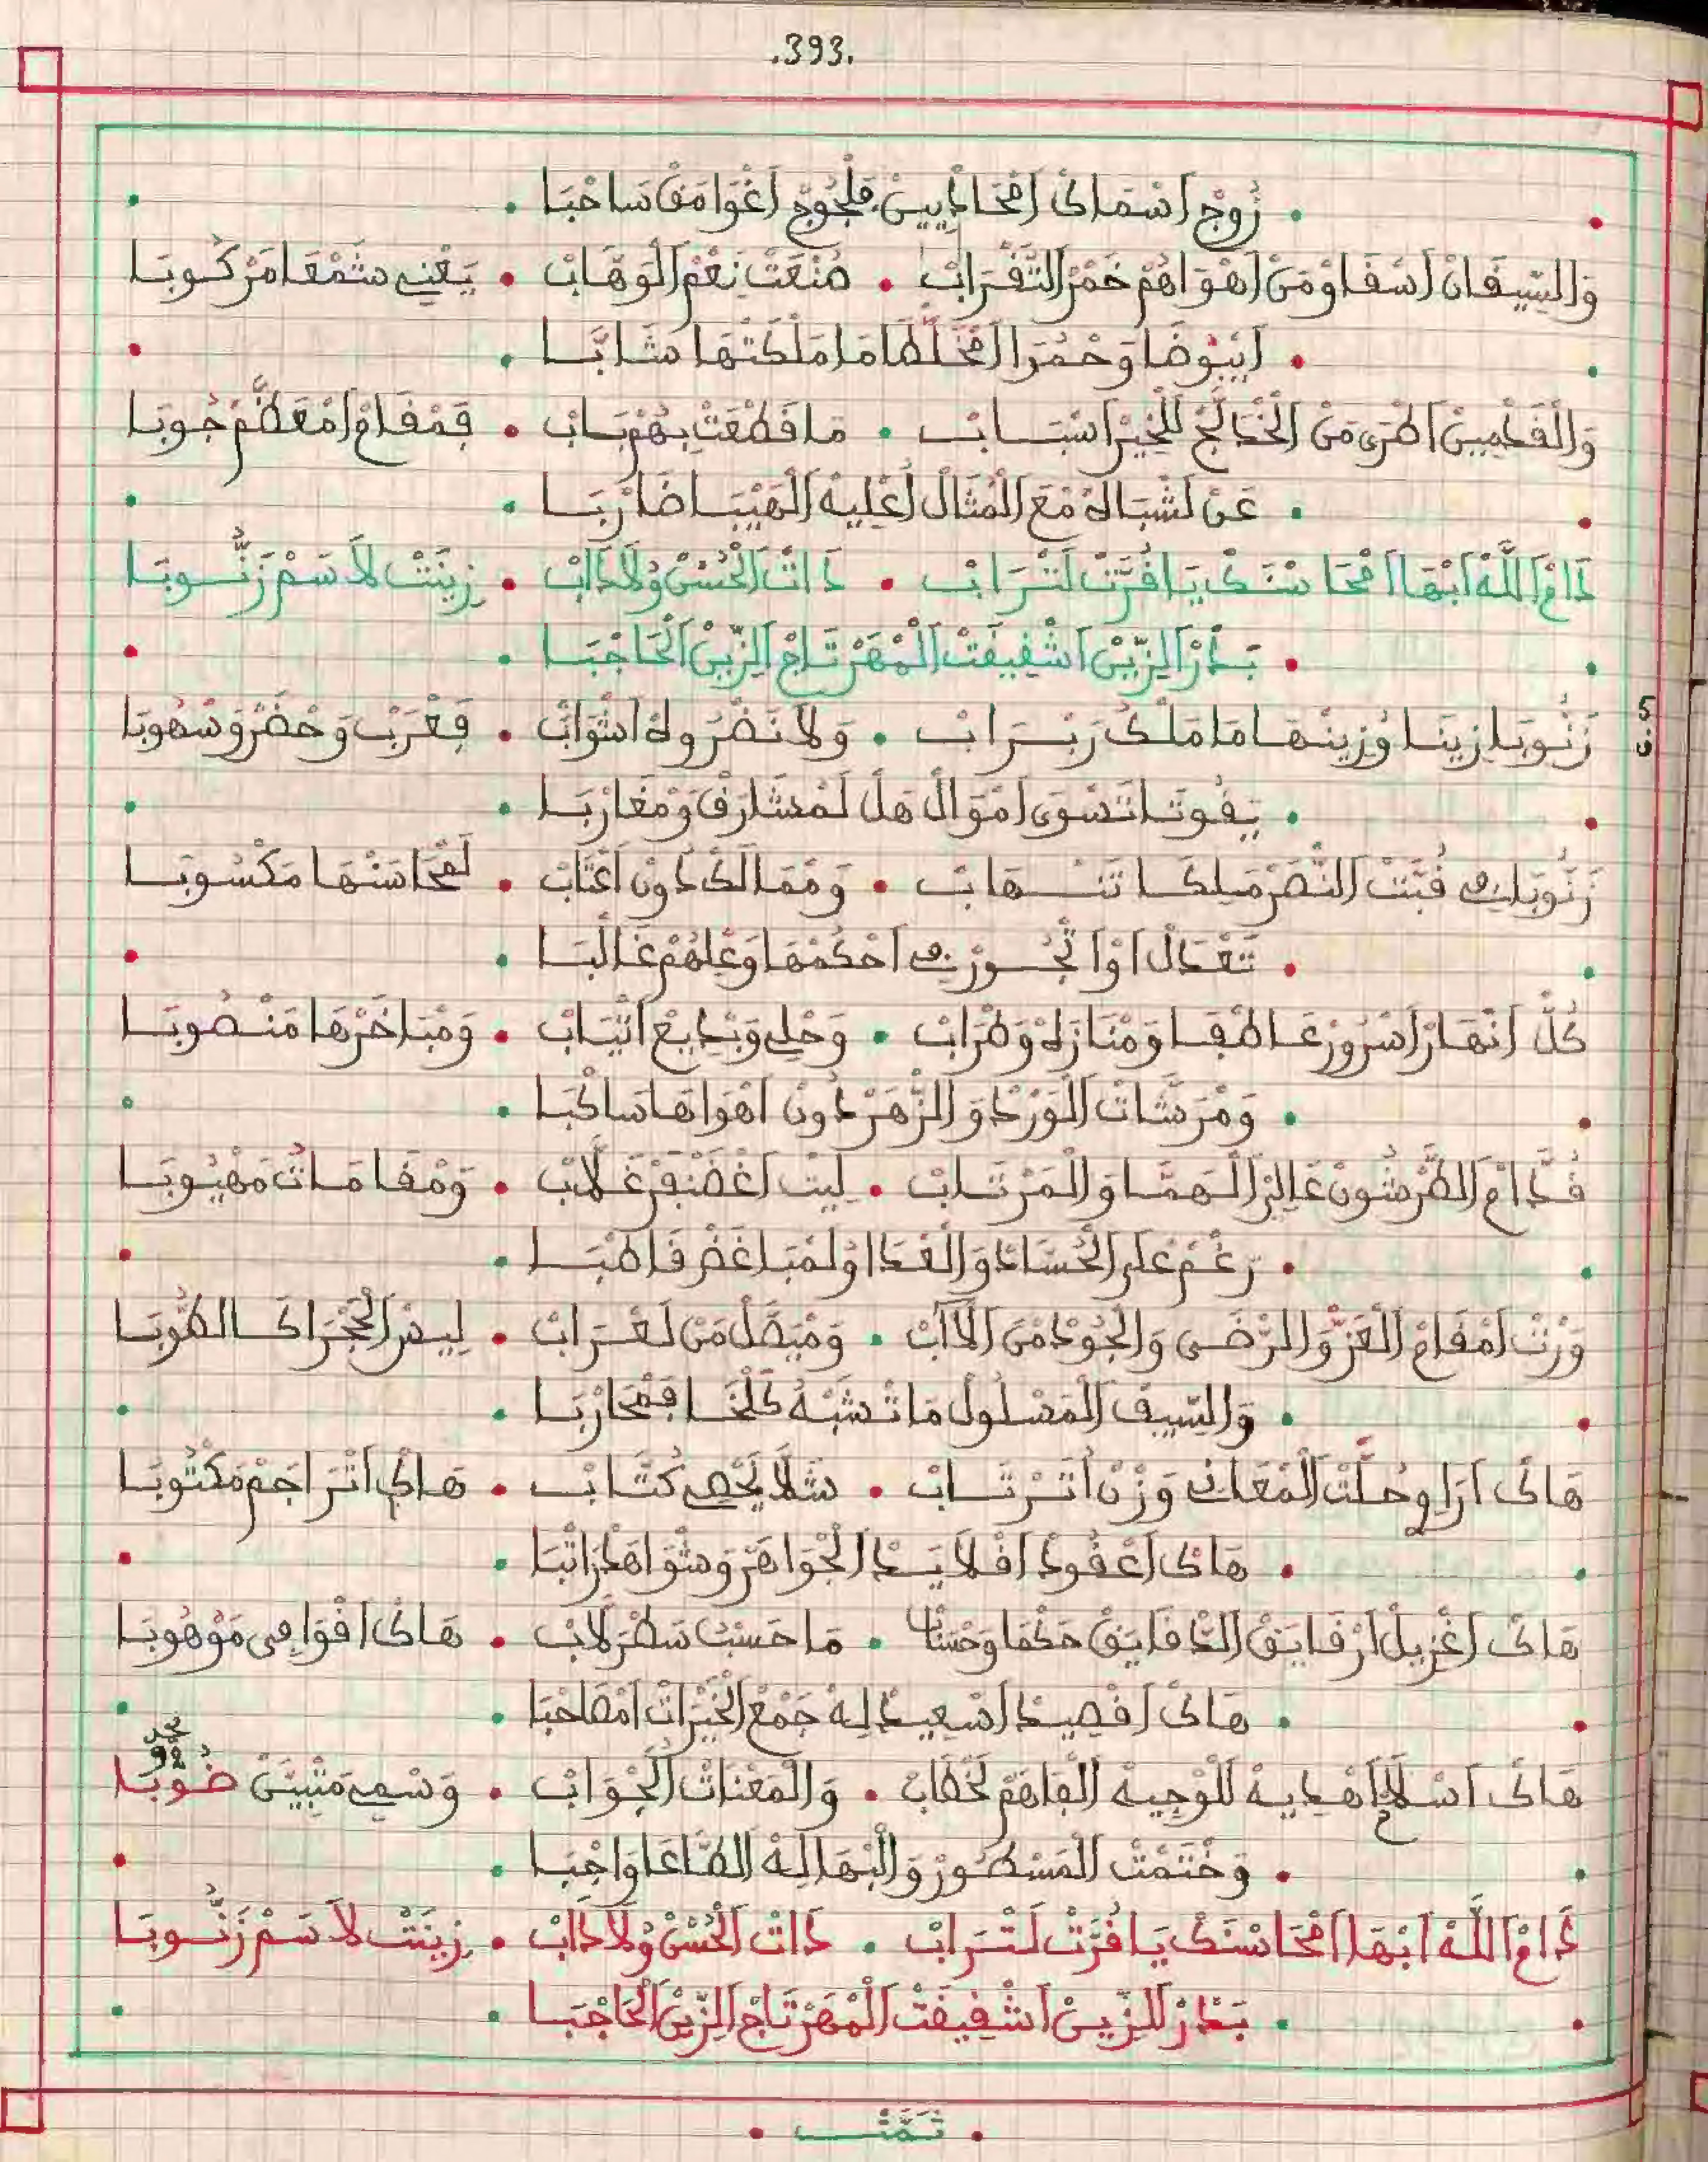 .393.
زُوجْ اَسْمَاكْ اَمْحَادْيِينْ فَلْجُوجْ اَغْوَامَقْ سَاحْبَا
وَالسِّيقَانْ اَسْقَاوْ مَنْ اَهْوَاهُمْ خَمْرْ التَّقْرَابْ • صُنْعَتْ نِعْمْ الْوَهَّابْ • يَعْنِي شَمْعَا مَرْكُوبَا
اَبْيُوضَا وَحْمُرَا اَمْخَلّْطَا مَا مَلْكَتْهَا شَابَّا
وَالْقَدْمِينْ اَطْرَى مَنْ الْخْدَلَّجْ لَلْخِيرْ اَسْبَابْ • مَا قَطْعَتْ بِهُمْ بَابْ • فَمْقَامْ اَمْعَظَّمْ جُوبَا
عَنْ لَشْبَالْهْ مْعَ الْمْثَالْ اَعْلِيهْ الْهَيْبَا ضَارْبَا
دَامْ اَللَّهْ اَبْهَا اَمْحَاسْنَكْ يَا قُرَّتْ لَتْرَابْ • دَاتْ اَلْحُسْنْ وُلَادَابْ • زِينَتْ لَاسَمْ زَنُّوبَا
بَدْرْ اَلزِّينْ اَشْفِيقَتْ اَلْمْهَرْ تَاجْ اَلزِّينْ اَلْحَاجْبَا
5
ق
زَنُّوبَا زِينَا وُزِينْهَا مَا مَلْكُ رَبْرَابْ • وَلَا نَضْرُ وِلْهْ اَشْوَابْ • فَعْرَبْ وَحْضَرْ وَسْهُوبَا
يَقُوتَا تَسْوَى اَمْوَالْ هَلْ لَمْشَارَقْ وَمْغَارْبَا
زَنُّوبَا فِي قُبَّتْ اَلنّْصَرْ مَلِكَا تَنْهَابْ • وَمْمَالَكْ دُونْ اَعْتَابْ • لَمْحَاسَنْهَا مَكْسُوبَا
تَعْدَالْ اَوْا تْجُورْ فِي اَحْكَمْهَا وَعْلِهُمْ غَالْبَا
كُلّْ اَنْهَارْ اَسْرُورْ عَاطْفَا وَمْنَازَهْ وَطْرَابْ • وَحْلِي وَبْدِيعْ اَتْيَابْ • وَمْبَاخَرْهَا مَنْصُوبَا
وَمْرَشَّاتْ الْوَرْدْ وَالزّْهَرْ دُونْ اَهْوَاهَا سَاكْبَا
قُدَّامْ اَلطَّرْشُونْ عَالِي اَلْهَمَّا وَالْمَرْتَابْ • لِيتْ اَغْضَنْفَرْ غَلَّابْ • وَمْقَامَاتُ مَهْيُوبَا
رَغْمْ عْلَى اَلْحُسَّادْ وَالْعْدَا وُلَمْبَاغَضْ قَاطْبَا
وَرْتْ اَمْقَامْ اَلْعَزّْ وَالرّْضَى وَالْجُودْ مْنَ الْأَابْ • وَمْيَصَّلْ مَنْ لَعْرَابْ • لِيسْ اَلْحْجْرَا كَالطُّوبَا
وَالسِّيفْ اَلْمَسْلُولْ مَا تْشَبْهُ كَلْخَا فَمْحَارْبَا
هَاكْ اَرَاوِي حُلَّتْ اَلْمْعَانِي وَزْنْ اَتَرْتَابْ • شَلَّا يَحْصِي كُتَّابْ • هَاكْ اَتْرَاجَمْ مَكْتُوبَا
هَاكْ اَعْقُودْ اَقْلَايَدْ اَلْجْوَاهَرْ وَشْوَاهَدْ رَاتْبَا
هَاكْ اَغْزِيلْ اَرْقَايَقْ اَلدّْقَايَقْ حَكْمَا وَحْسَابْ • مَا حَسْبَتْ سَطْرَلَابْ • هَاكْ اَقْوَافِي مَوْهُوبَا
هَاكْ اَقْصِيدْ اَسْعِيدْ لِهْ جَمْعْ اَلْخَيْرَاتْ اَمْصَاحْبَا
محمد
92
هَاكْ اَسْلَامْ اَهْدِيهْ لَلْوْجِيهْ اَلْفَاهَمْ لَخْطَابْ • وَالْمَعْنَاتْ اَلْجْوَابْ • وَسْمِي مَثْبِيَّنْ ضُوبَا
وَخْتَمْتْ اَلْمَسْطُورْ وَالْبْهَا لِهْ اَلطَّاعَا وَاجْبَا
دَامْ اَللَّهْ اَبْهَا اَمْحَاسْنَكْ يَا قُرَّتْ لَتْرَابْ • دَاتْ اَلْحُسْنْ وُلَادَابْ • زِينَتْ لَاسَمْ زَنُّوبَا
بَدْرْ اَلزِّينْ اَشْفِيقَتْ اَلْمْهَرْ تَاجْ اَلزِّينْ اَلْحَاجْبَا
• تَمَّتْ •